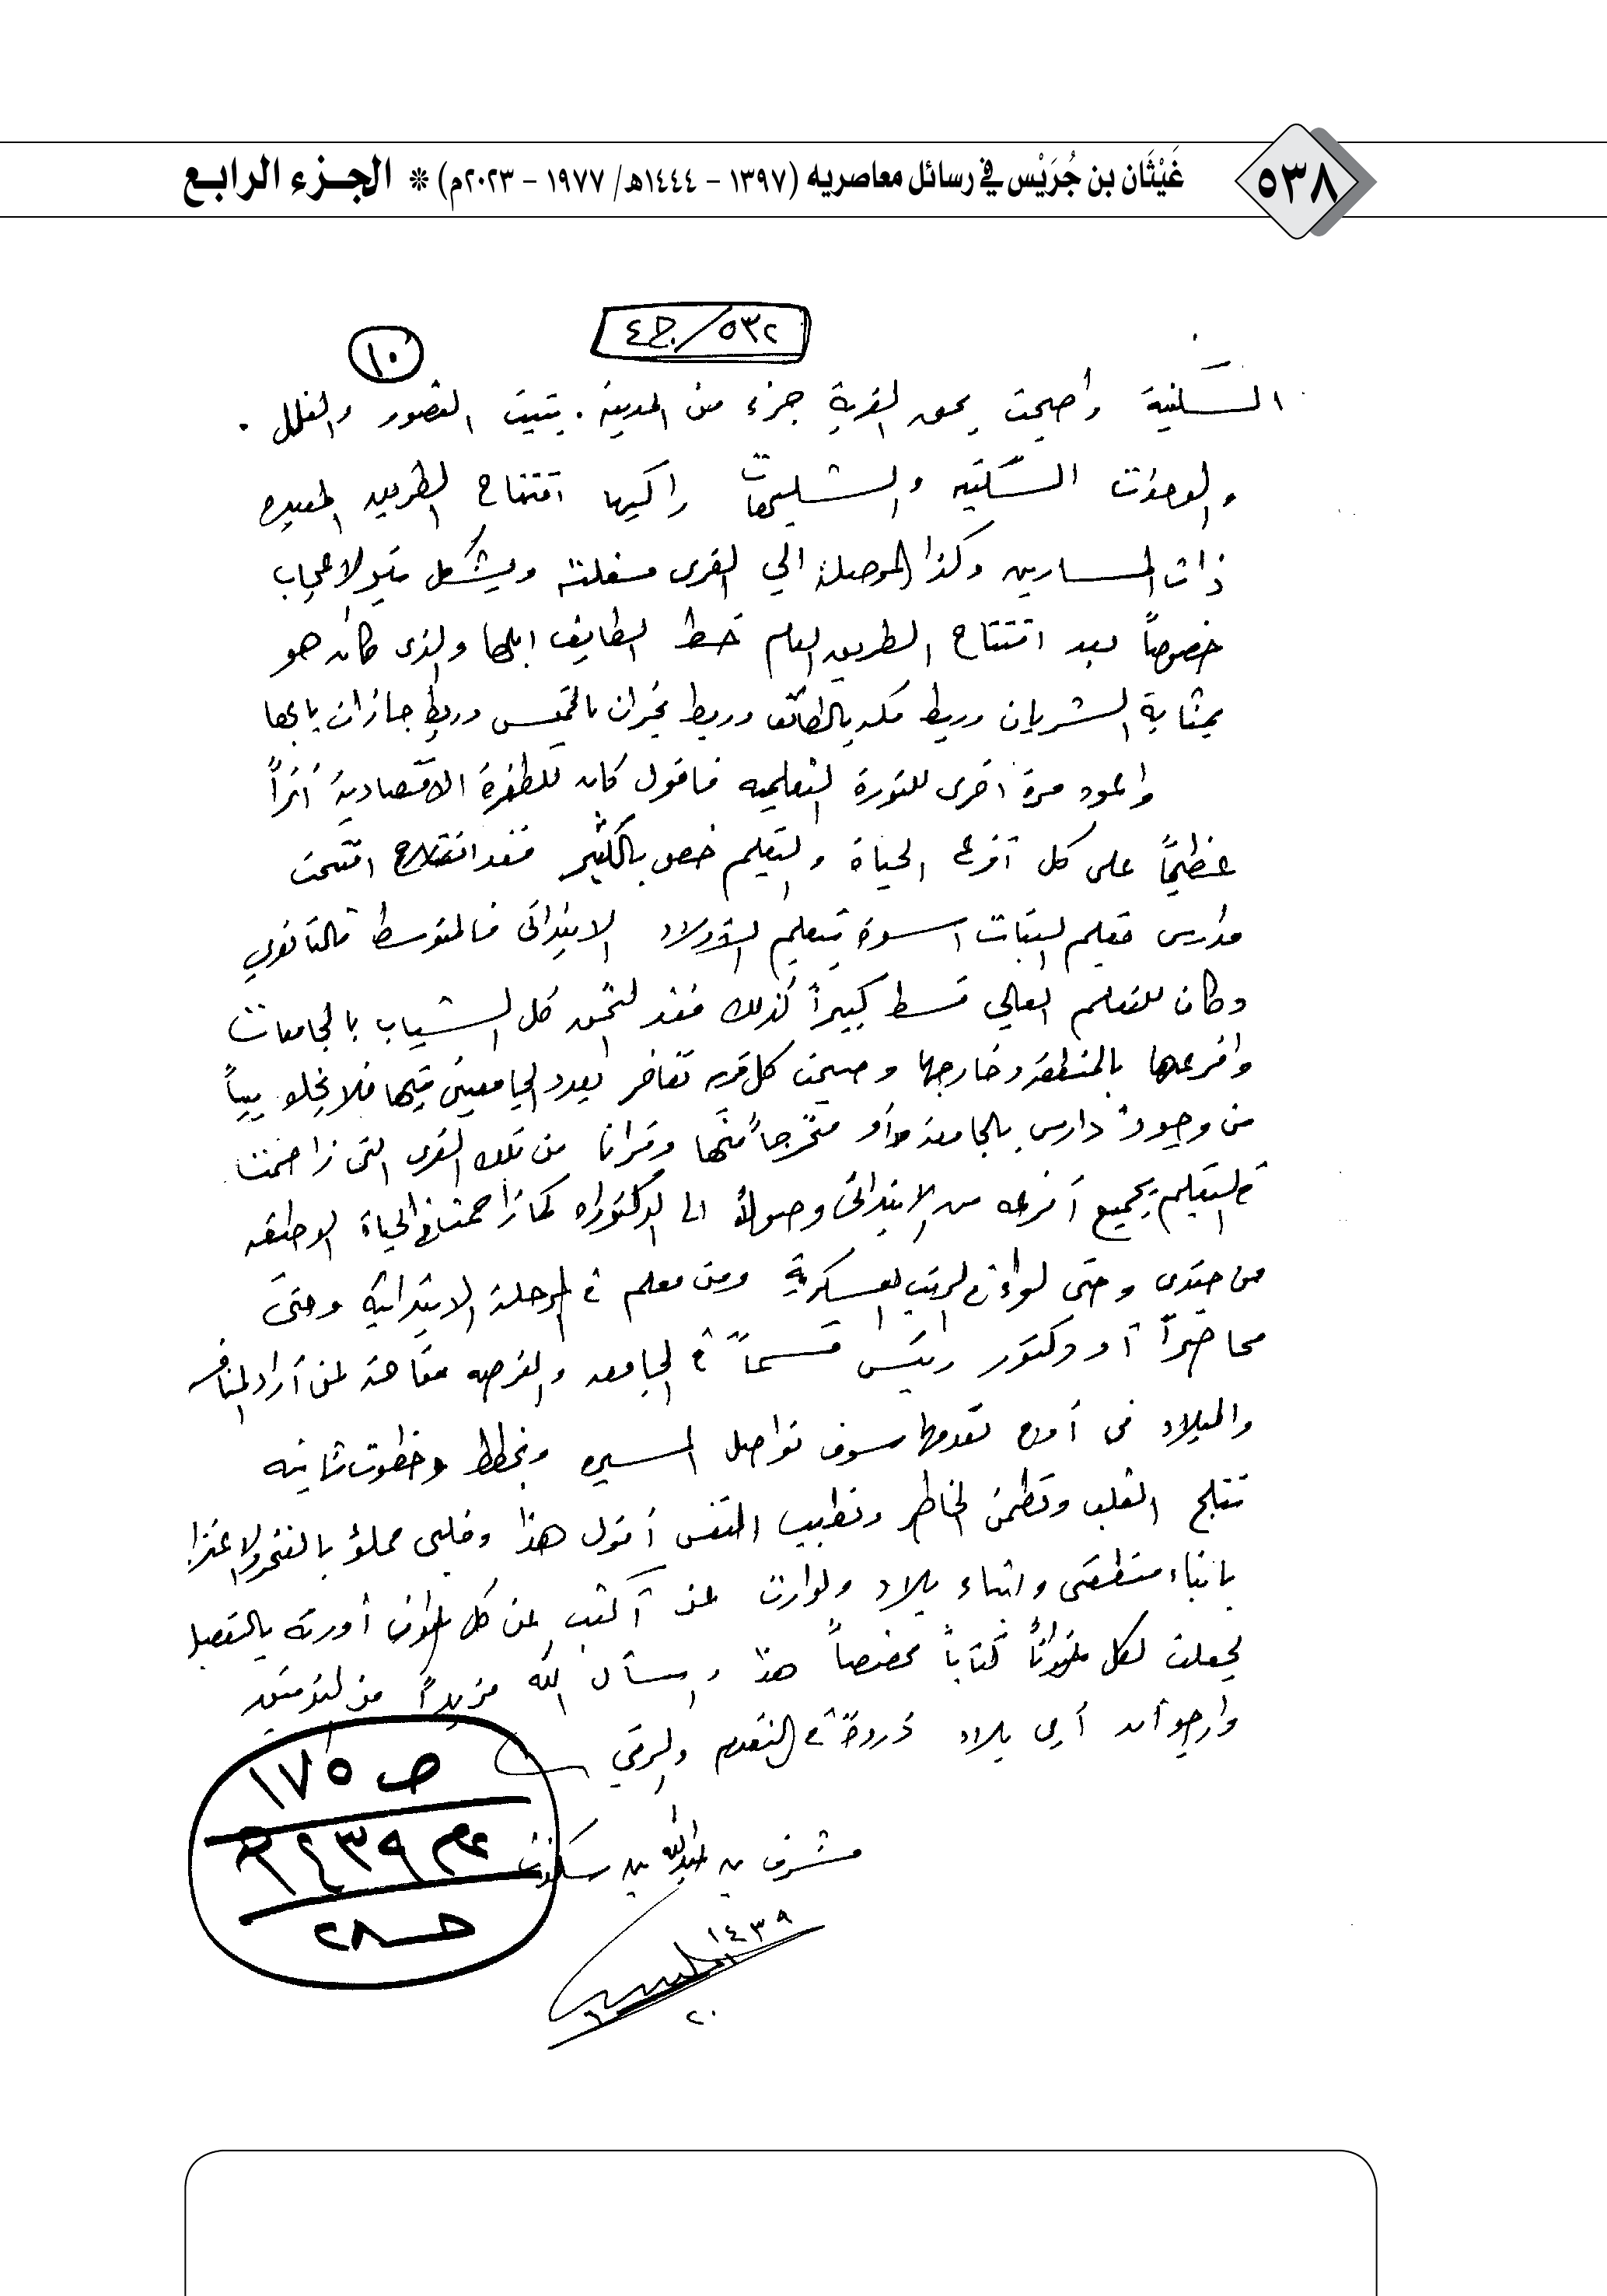 ٥٣٨
غَيْثَان بن جُرَيْس في رسائل معاصريه (١٣٩٧ - ١٤٤٤هـ/ ١٩٧٧ - ٢٠٢٣م) * الجـزء الرابـع
٥٣٢/ج٤
١٠
السكنية وأصبحت بحق القرية جزء من المدينة. بنيت القصور والفلل.
والوحدات السكنيه والشليهات راكبها افتتاح الطريق المعبده
ذات المسارين وكذا الموصلة الي القرى مسفلته وبشكل مثير لاعجاب
خصوصاً بعد افتتاح الطريق العام خط الطايف ابلها والذى كان هو
بمثابة الشريان وربط مكه بالطائف وربط نجران بالخميس وربط جازان بابها
واعود مرة اخرى للثورة التعلميه فاقول كان للطفرة الاقتصادية أثراً
عظيماً على كل أفرع الحياة والتعليم خص بالكثير فقد افتتحت
مدارس تعليم البنات اسوة بتعليم الأولاد الابتدائى فالمتوسط فالثانوي
وكان للتعلم العالي قسط كبيراً كذلك فقد التحق كل الشباب بالجامعات
وافرعها بالمنطقه وخارجها وصبحت كل قريه تفاخر بعدد الجامعين فيها فلا يخلو بيتاً
من وجود دارس بالجامعه أو متخرجاً منها وقرانا من تلك القرى التى زاحمت
في التعليم بجميع أفرعه من الابتدائى وصولاً الى الدكتوراه كما زاحمت في الحياة الوظيفه
من جندى وحتى لواء في الرتب العسكرية ومن معلم في المرحلة الابتدائيه وحتى
محاضراً أو دكتور رئيس قسماً في الجامعه والفرصه متاحة لمن أراد المنافسه
والبلاد فى أوج تقدمها سوف تواصل المسيره وبخطط وخطوت ثابته
تثلج القلب وتطمئن الخاطر وتطيب النفس أقول هذا وقلبى مملؤ بالفخر والاعتزاز
بابناء منطقتى وابناء بلاد ولواردت عن أكتب عن كل عنوان أوردته بالتفصيل
لجعلت لكل عنواناً كتاباً مختصاً هذا واسأل الله مزيداً من التوفيق
وارجو أن أرى بلاد ذروة في التقدم والرقي
مشرف بن عبدالله بن
١٤٣٩
٢٠
ص ١٧٥
عم ١٤٣٩هـ
حـ٢٨